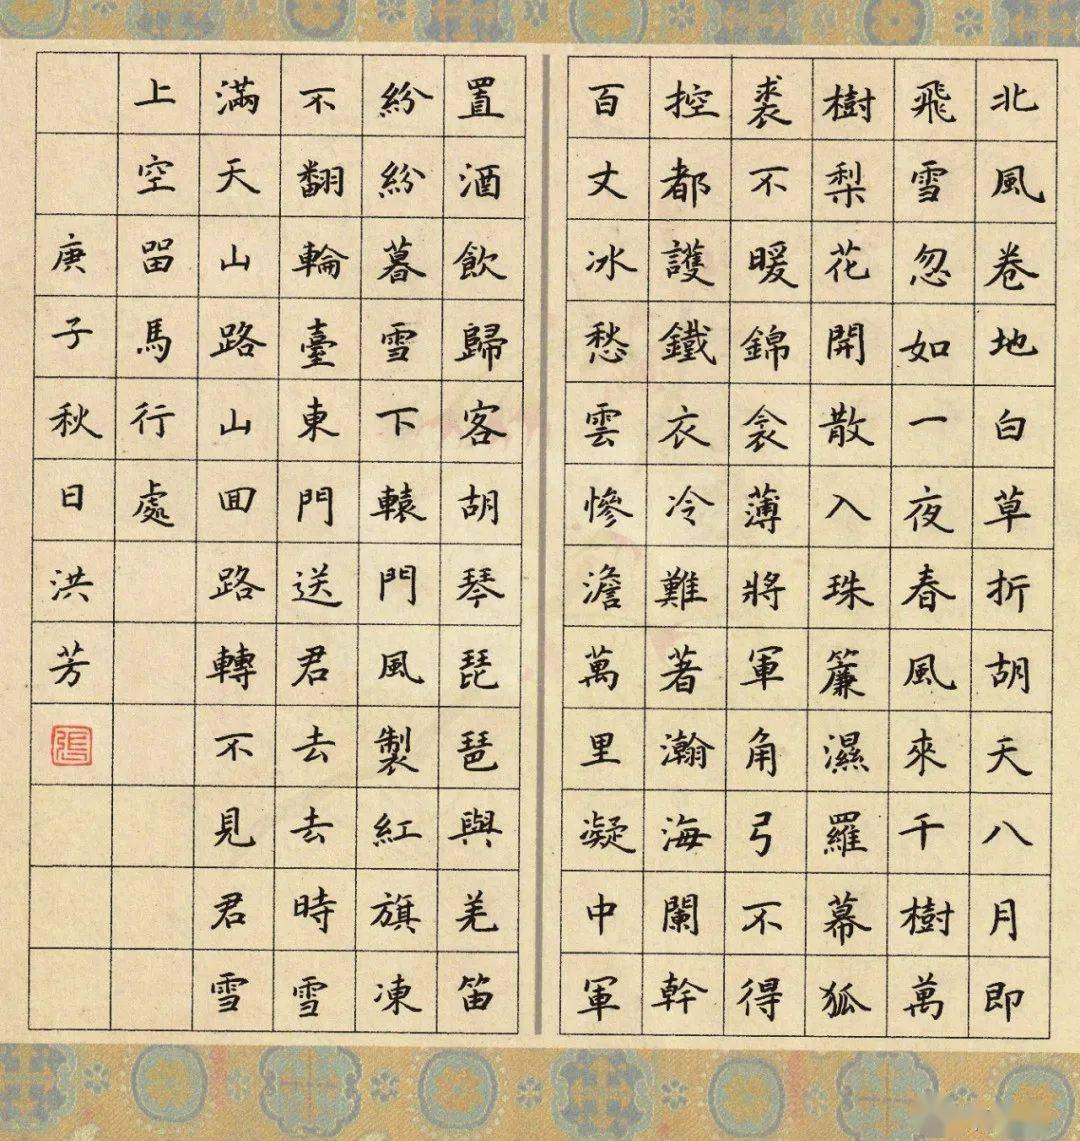 北風卷地白草折胡天八月即
飛雪忽如一夜春風來千樹萬
樹梨花開散入珠簾濕羅幕狐
裘不暖錦衾薄將軍角弓不得
控都護鐵衣冷難著瀚海闌幹
百丈冰愁雲慘澹萬里凝中軍
置酒飲歸客胡琴琵琶與羌笛
紛紛暮雪下轅門風製紅旗凍
不翻輪臺東門送君去去時雪
滿天山路山囬路轉不見君雪
上空留馬行處
庚子秋日洪芳
張